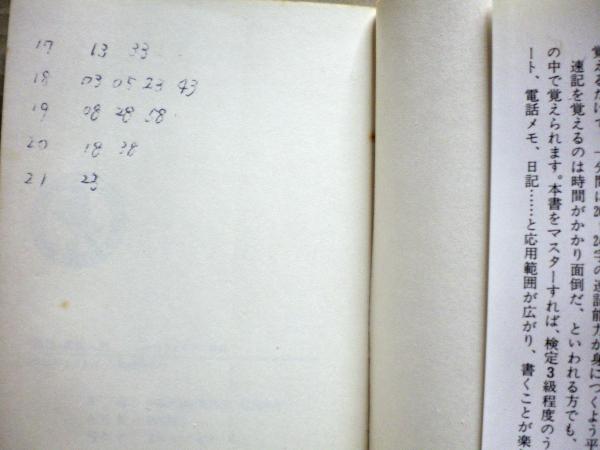 17 13 33
18 03 05 23 43
19 08 28 58
20 18 38
21 23
覚えるだけで、一分間に
速記を覚えるのは時間がかかり面倒だ、といわれる方でも、
の中で覚えられます。本書をマスターすれば、検定3級程度の
ート、電話メモ、日記……と応用範囲が広がり、書くことが楽